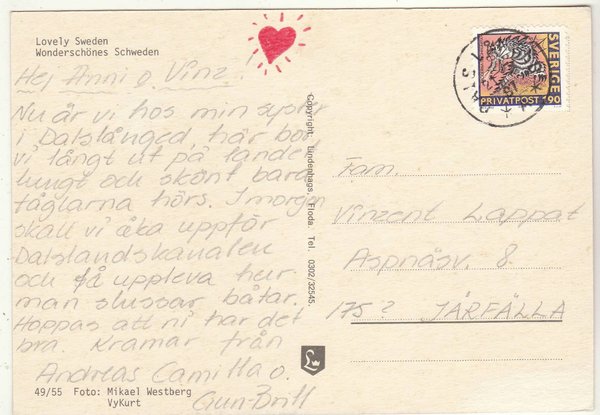 Lovely Sweden
Wonderschönes Schweden
Hej Änni o. Vinz!
Nu är vi hos min syster
i Dalslånged, här bor
vi långt ut på lande
lungt och skönt bara
fåglarna hörs. I morgon
skall vi åka uppför
Dalslandskanalen
och få uppleva hur
man slussar båtar.
Hoppas att ni har det
bra. Kramar från
Andreas Camilla o.
Gun-Britt
49/55 Foto: Mikael Westberg
VyKurt
Copyright: Lindenhags, Floda. Tel. 0302/32545.
L
SVERIGE
PRIVATPOST 190
Fam.
Vinzent Lappat
Aspnäsv. 8
175 ? JÄRFÄLLA